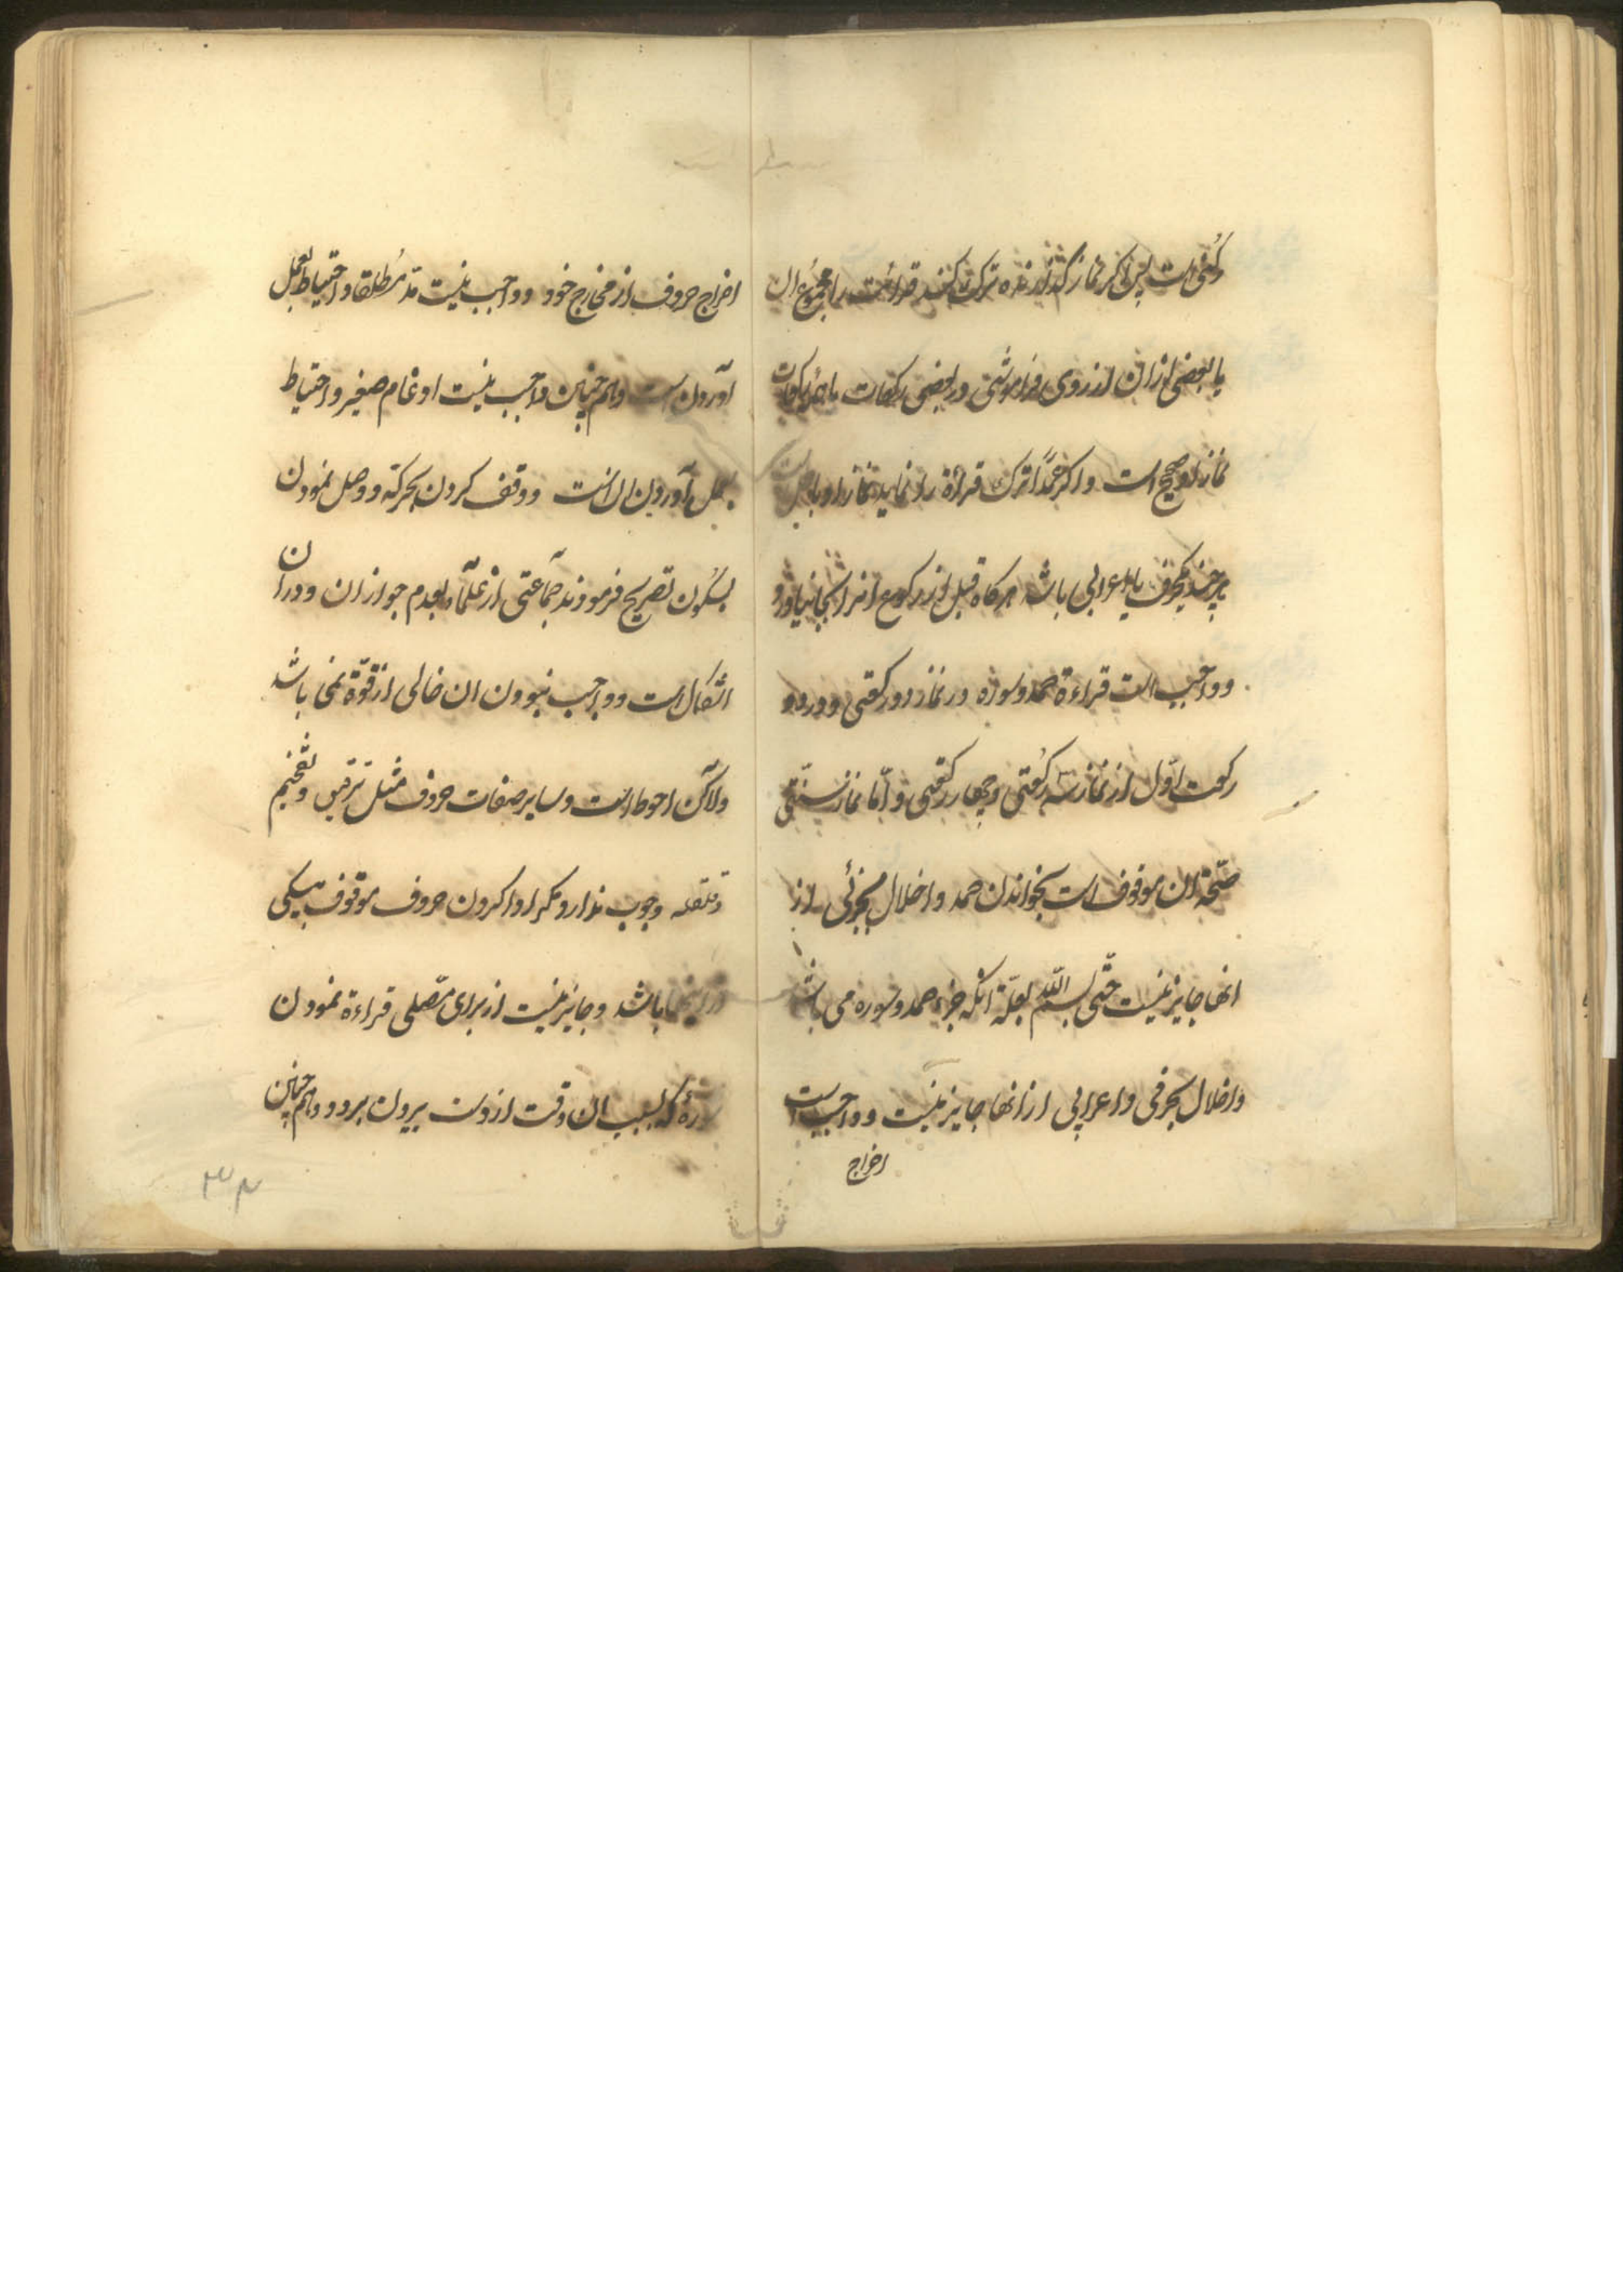 رکنی است پس اگر نماز گذارنده ترک کند قرائت را مجموع ان
یا بعضی از ان از روی فراموشی در بعضی رکعات یا همه رکعات
نماز او صحیح است و اگر عمداً ترک قراءة را نماید نماز او باطل است
هر چند یکحرف یا اعرابی باشد هرگاه قبل از رکوع انرا بجا نیاورد
و واجب است قراءة حمد و سوره در نماز دو رکعتی و در دو
رکعت اوّل از نماز سه رکعتی و چهار رکعتی و امّا نماز سنّتی
صحّة ان موقوف است بخواندن حمد و اخلال بجزئی از
انها جایز نیست حتّی بسم اللّه بعلّة انکه جزء حمد و سوره می باشد
و اخلال بحرفی و اعرابی از انها جایز نیست و واجب است
اخراج
اخراج حروف از مخارج خود و واجب نیست مد مُطلقا و احتیاط بعمل
آوردن است و همچنین واجب نیست ادغام صغیر و احتیاط
بعمل آوردن ان است و وقف کردن بحرکة و وصل نمودن
بسکون تصریح فرمودند جماعتی از علماء بعدم جواز ان و در ان
اشکال است و واجب نبودن ان خالی از قوّة نمی باشد
ولاکن احوط است و سایر صفات حروف مثل ترقیق و تفخیم
و قلقله وجوب ندارد مکر ادا کردن حروف موقوف بیکی
از اینها باشد و جایز نیست از برای مصّلی قراءة نمودن
سورهٔ که بسبب ان وقت از دست بیرون برود و همچنین